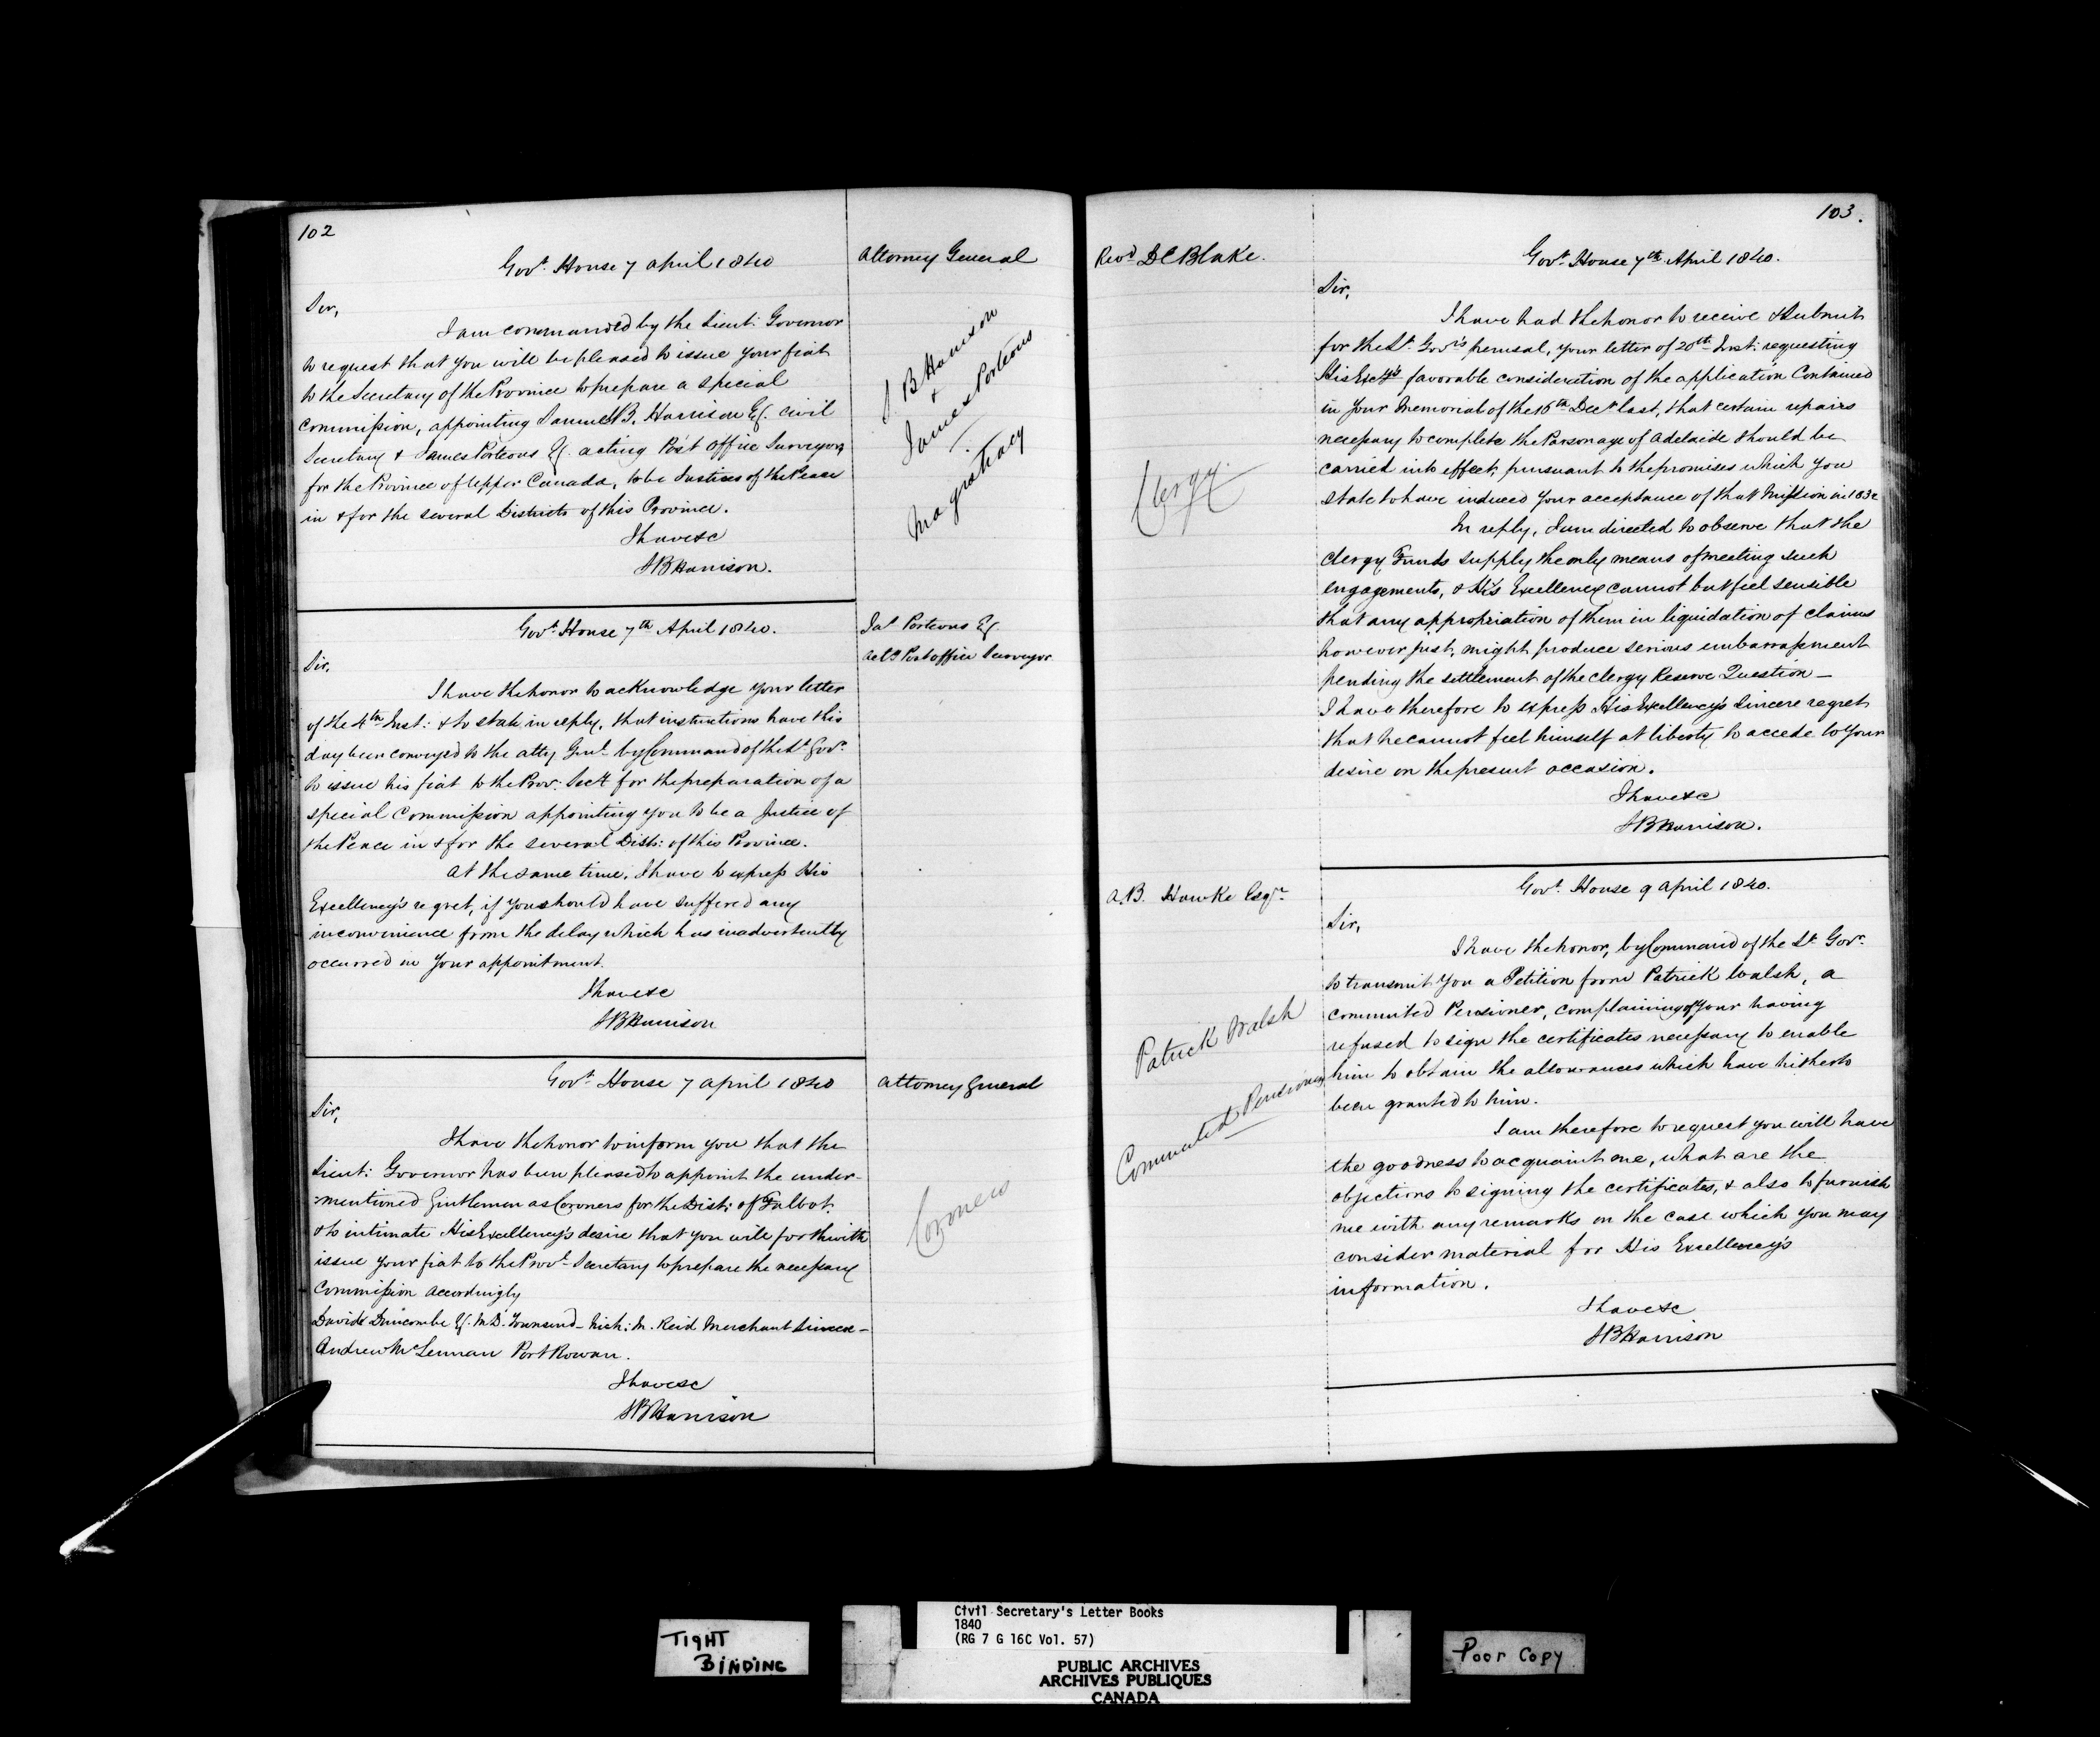 102
Govt. House 7 April 1840
Attorney General
Sir,
I am commanded by the Lieut: Governor
to request that you will be pleased to issue your fiat
to the Secretary of the Province to prepare a special
commission, appointing Samuel B. Harrison Esq. civil
Secretary & James Porteous Esq. acting Post Office Surveyor
for the Province of Upper Canada, to be Justices of the Peace
in & for the several Districts of this Province.
I have &c
SBHarrison.
S. B Harrison
&
James Porteous
Magistracy
Govt. House 7th April 1840.
Jas Porteous Esq
actg Post office Surveyor
Sir,
I have the honor to acknowledge your letter
of the 4th Inst: & to state in reply, that instructions have this
day been conveyed to the Atty Genl. by Command of the Lt. Govr.
to issue his fiat to the Prov: Secy for the preparation of a
special Commission appointing you to be a Justice of
the Peace in & for the several Dists: of this Province.
At the same time, I have to express His
Excellency's regret, if you should have suffered any
inconvenience from the delay which has inadvertently
occurred in your appointment.
I have &c
SBHarrison
Govt. House 7 April 1840
Attorney General
Sir,
I have the honor to inform you that the
Lieut: Governor has been pleased to appoint the under-
:mentioned Gentlemen as Coroners for the Dist: of Talbot.
& to intimate His Excellency's desire that you will forthwith
issue your fiat to the Provl. Secretary to prepare the necessary
Commission accordingly
David Duncombe Esq. M.D. Townsend - Rich: M. Reid Merchant Simcoe -
Andrew McLennan Port Rowan.
I have &c
SBHarrison
Coroners
103.
Revd. D C Blake.
Govt. House 7th April 1840.
Sir,
I have had the honor to receive & submit
for the Lt. Govr's perusal, your letter of 20th Inst: requesting
His Excy's favorable consideration of the application Contained
in your Memorial of the 16th Decr last, that certain repairs
necessary to complete the Parsonage of Adelaide should be
carried into effect, pursuant to the promises which you
state to have induced your acceptance of that Mission in 1832
In reply, I am directed to observe that the
Clergy Funds supply the only means of meeting such
engagements, & His Excellency cannot but feel sensible
that any appropriation of them in liquidation of claims
however just, might produce serious embarrassment
pending the settlement of the Clergy Reserve Question -
I have therefore to express His Excellency's sincere regret
that he cannot feel himself at liberty to accede to your
desire on the present occasion.
I have &c
SBHarrison.
Clergy
A.B. Hawke Esqr.
Govt. House 9 April 1840.
Sir,
I have the honor, by Command of the Lt. Govr.
to transmit you a Petition from Patrick Walsh, a
commuted Pensioner, complaining of your having
refused to sign the certificates necessary to enable
him to obtain the allowances which have hitherto
been granted to him.
I am therefore to request you will have
the goodness to acquaint me, what are the
objections to signing the certificates, & also to furnish
me with any remarks on the case which you may
consider material for His Excellency's
information.
I have &c
SBHarrison
Patrick Walsh
Commuted Pensioner
TIGHT
BINDING
Civil Secretary's Letter Books
1840
(RG 7 G 16C Vol. 57)
PUBLIC ARCHIVES
ARCHIVES PUBLIQUES
CANADA
Poor Copy